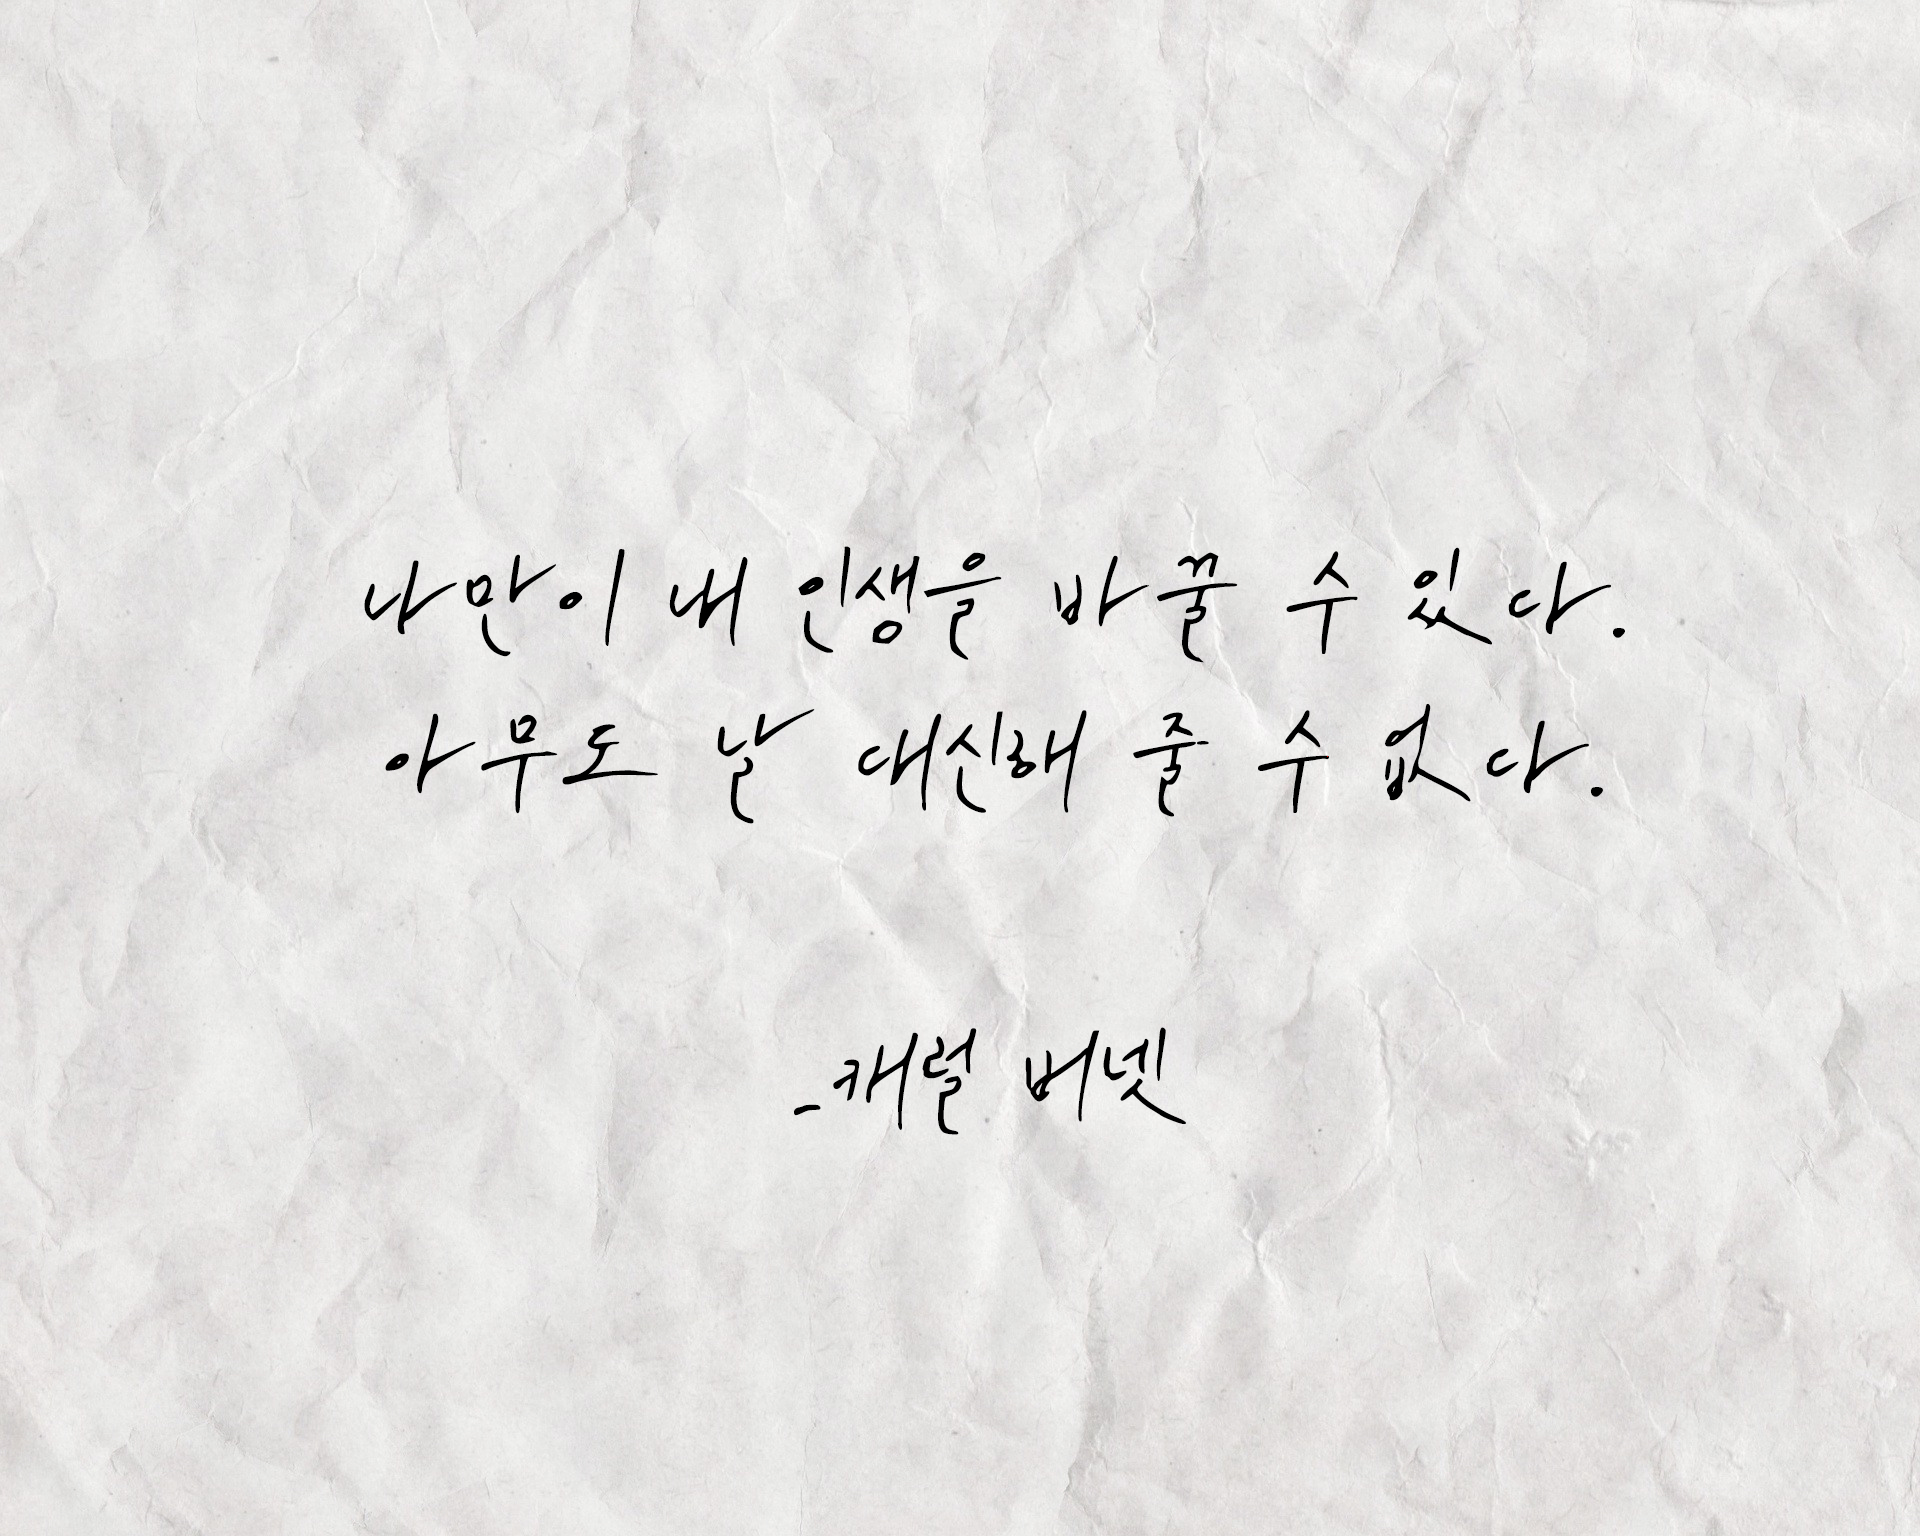 나만이 내 인생을 바꿀 수 있다.
아무도 날 대신해 줄 수 없다.
_캐럴 버넷